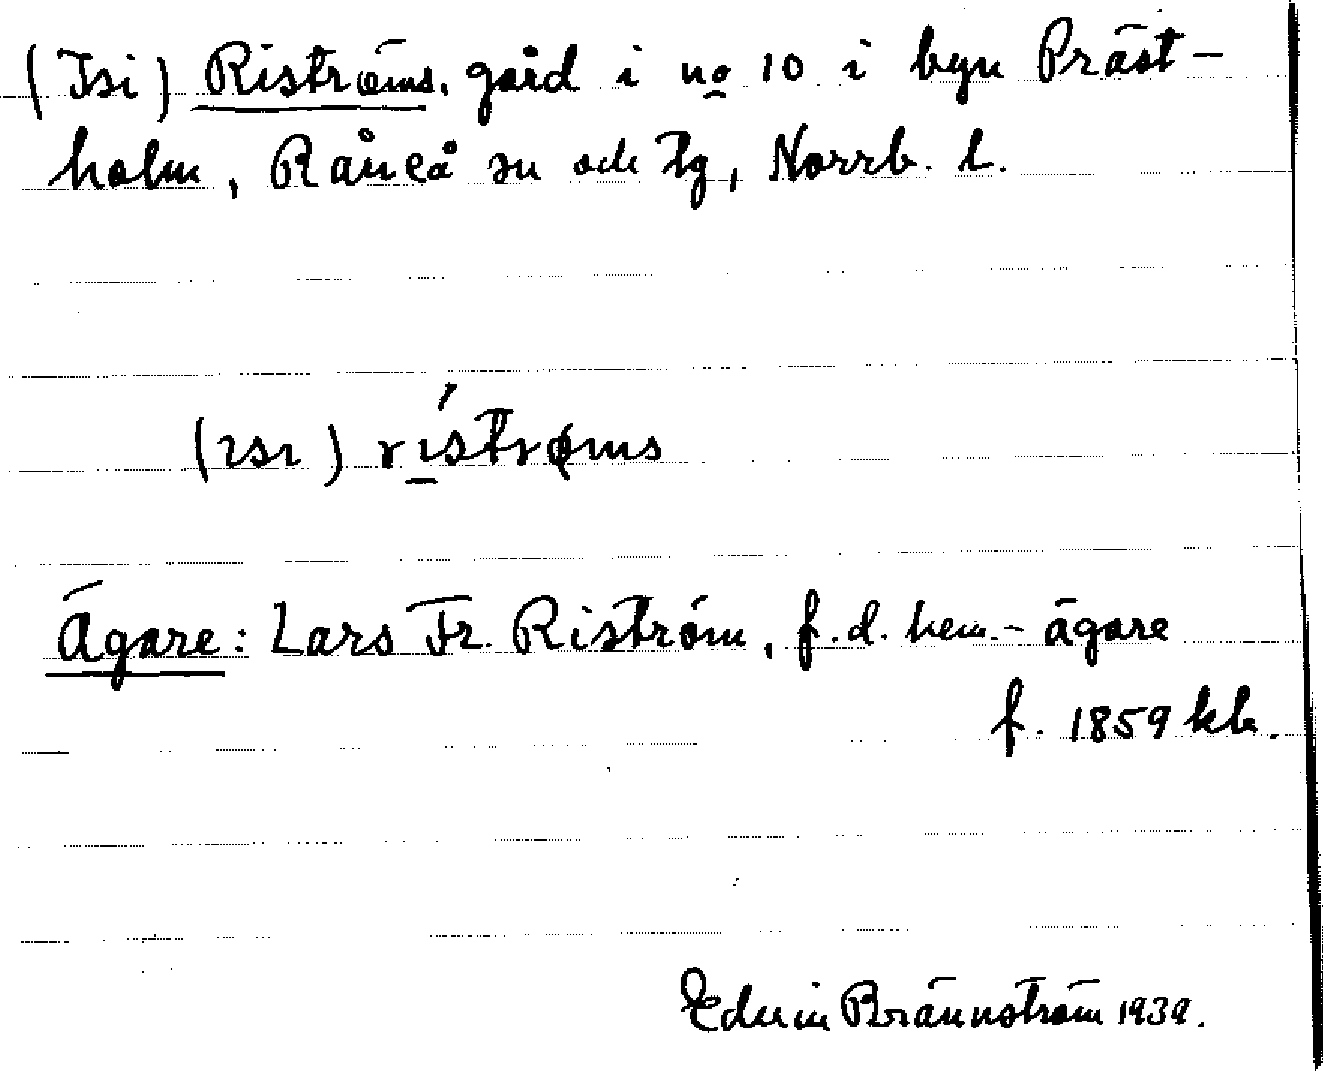 (Isi) Riströms, gård i no 10 i byn Präst-
holm, Råneå sn och tg, Norrb. l.
(ɪsɪ) rístrøms
Ägare: Lars Fr. Riström, f.d. hem.-ägare
f. 1859 kb.
Edvin Brännström 1939.